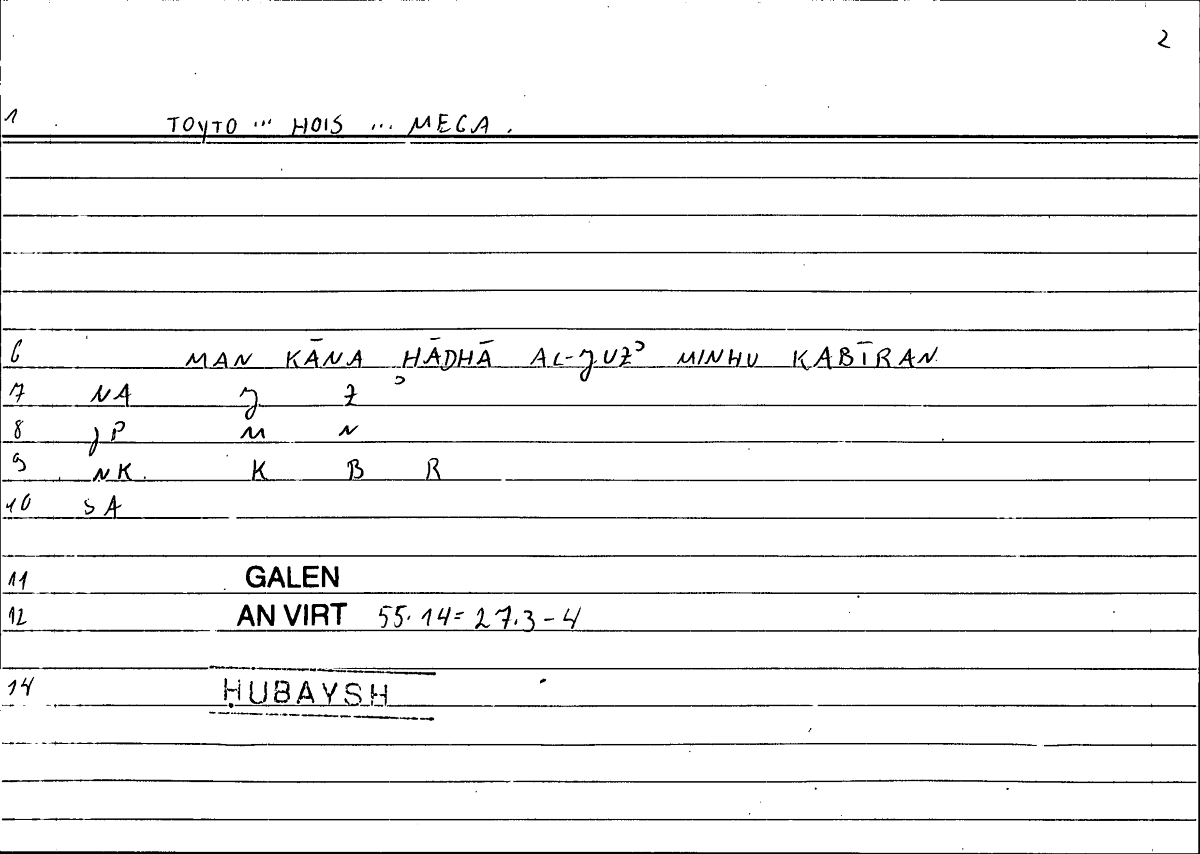 2
1 TOYTO ... HOIS ... MEGA.
6 MAN KĀNA HĀDHĀ AL-JUZʾ MINHU KABĪRAN
7 NA J Z ʾ
8 JP M N
9 NK. K B R
10 SA
11 GALEN
12 AN VIRT 55.14=27.3-4
14 ḤUBAYSH